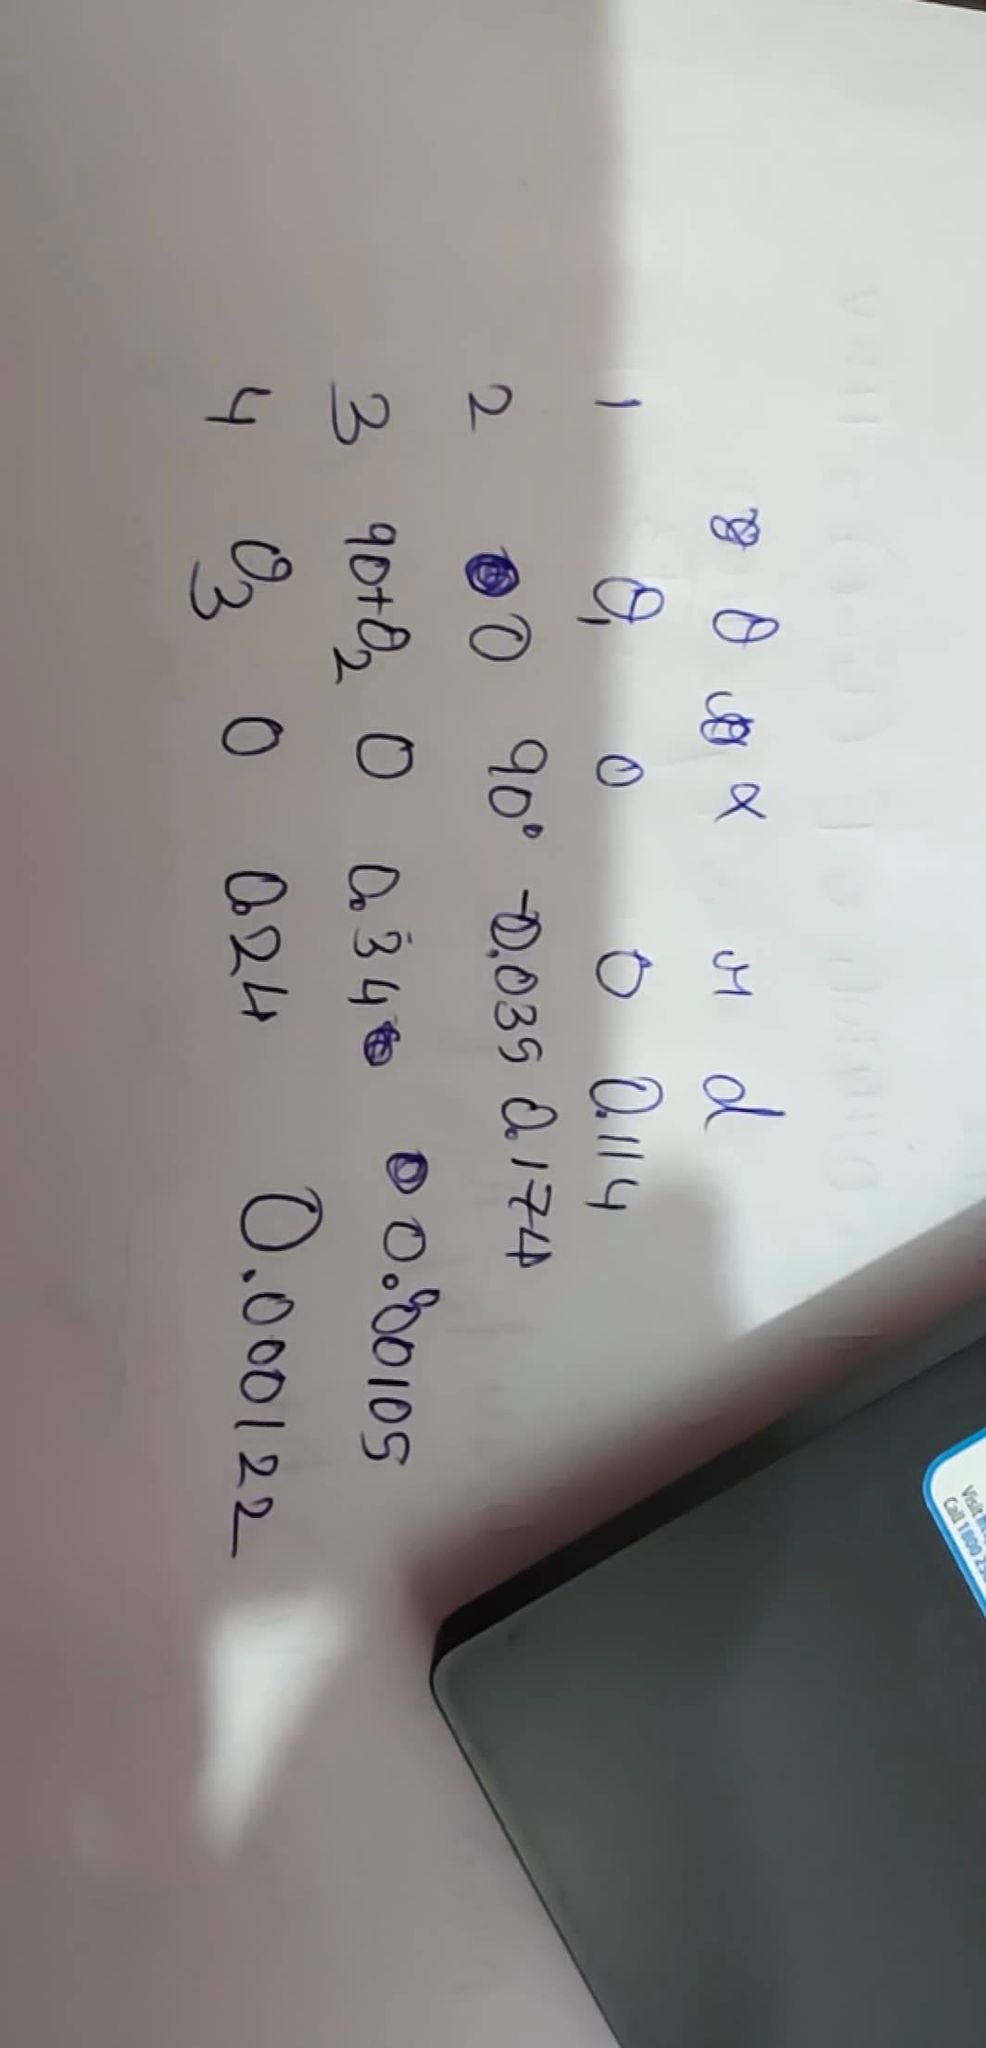 θ α r d
1 θ₁ 0 0 0.114
2 0 90° -0.035 0.174
3 90+θ₂ 0 0.34 0.00105
4 θ₃ 0 0.24 0.000122
Visit
Call 1800